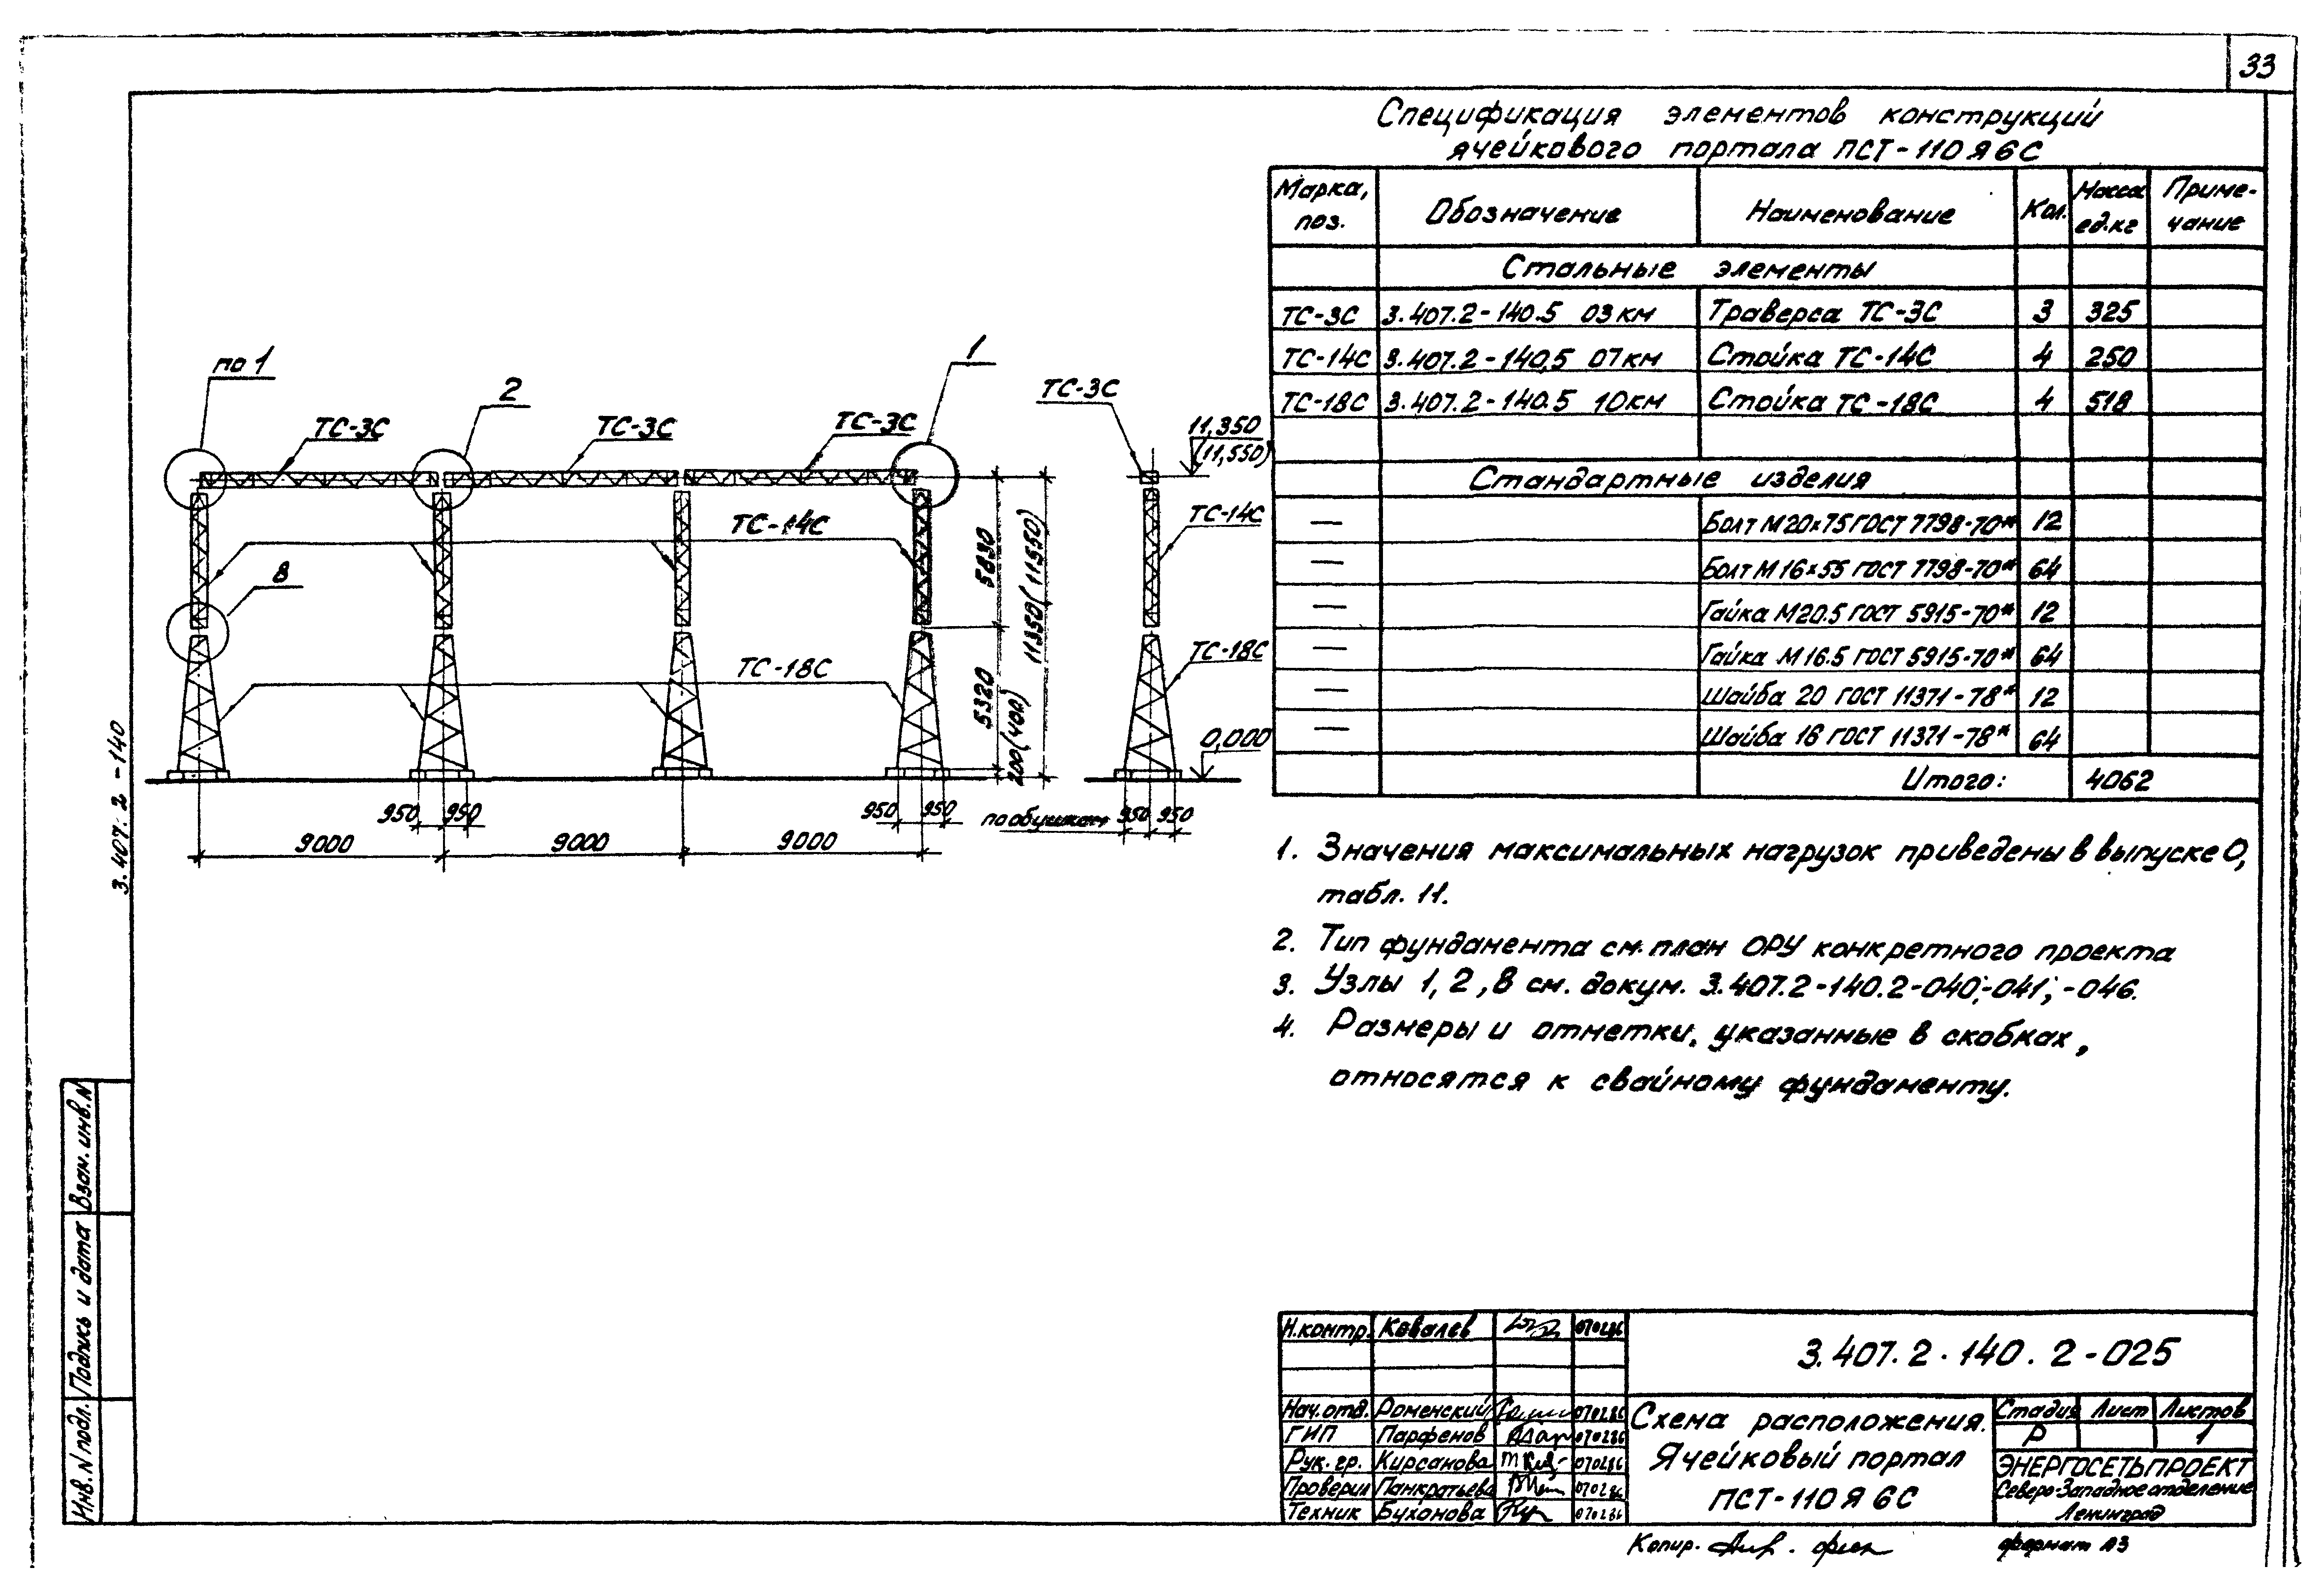 33
Спецификация элементов конструкций
ячейкового портала ПСТ-110Я6С
Марка, поз. Обозначение Наименование Кол. Масса ед.кг Примечание
Стальные элементы
ТС-3С 3.407.2-140.5 03км Траверса ТС-3С 3 325
ТС-14С 3.407.2-140.5 07км Стойка ТС-14С 4 250
ТС-18С 3.407.2-140.5 10км Стойка ТС-18С 4 518
Стандартные изделия
— Болт М20х75 ГОСТ 7798-70* 12
— Болт М16х55 ГОСТ 7798-70* 64
— Гайка М20.5 ГОСТ 5915-70* 12
— Гайка М16.5 ГОСТ 5915-70* 64
— Шайба 20 ГОСТ 11371-78* 12
— Шайба 16 ГОСТ 11371-78* 64
Итого: 4062
по 1
2
1
ТС-3С
ТС-3С
ТС-3С
ТС-3С
11,350
(11,550)
ТС-14С
ТС-14С
8
5830
11350(11550)
ТС-18С
ТС-18С
5320
200(400)
0,000
950 950
950 950
по обушкам 950 950
9000 9000 9000
1. Значения максимальных нагрузок приведены в выпуске 0,
табл. 11.
2. Тип фундамента см. план ОРУ конкретного проекта
3. Узлы 1, 2, 8 см. докум. 3.407.2-140.2-040;-041;-046.
4. Размеры и отметки, указанные в скобках,
относятся к свайному фундаменту.
3.407.2-140
Взам. инв. N
Подпись и дата
Инв. N подл.
Н.контр. Ковалев 070286
3.407.2.140.2-025
Нач.отд. Роменский 070286
ГИП Парфенов 070286
Рук. гр. Кирсанова 070286
Проверил Панкратьева 070286
Техник Буханова 070286
Схема расположения.
Ячейковый портал
ПСТ-110Я6С
Стадия Лист Листов
Р 1
ЭНЕРГОСЕТЬПРОЕКТ
Северо-Западное отделение
Ленинград
Копир.
формат А3